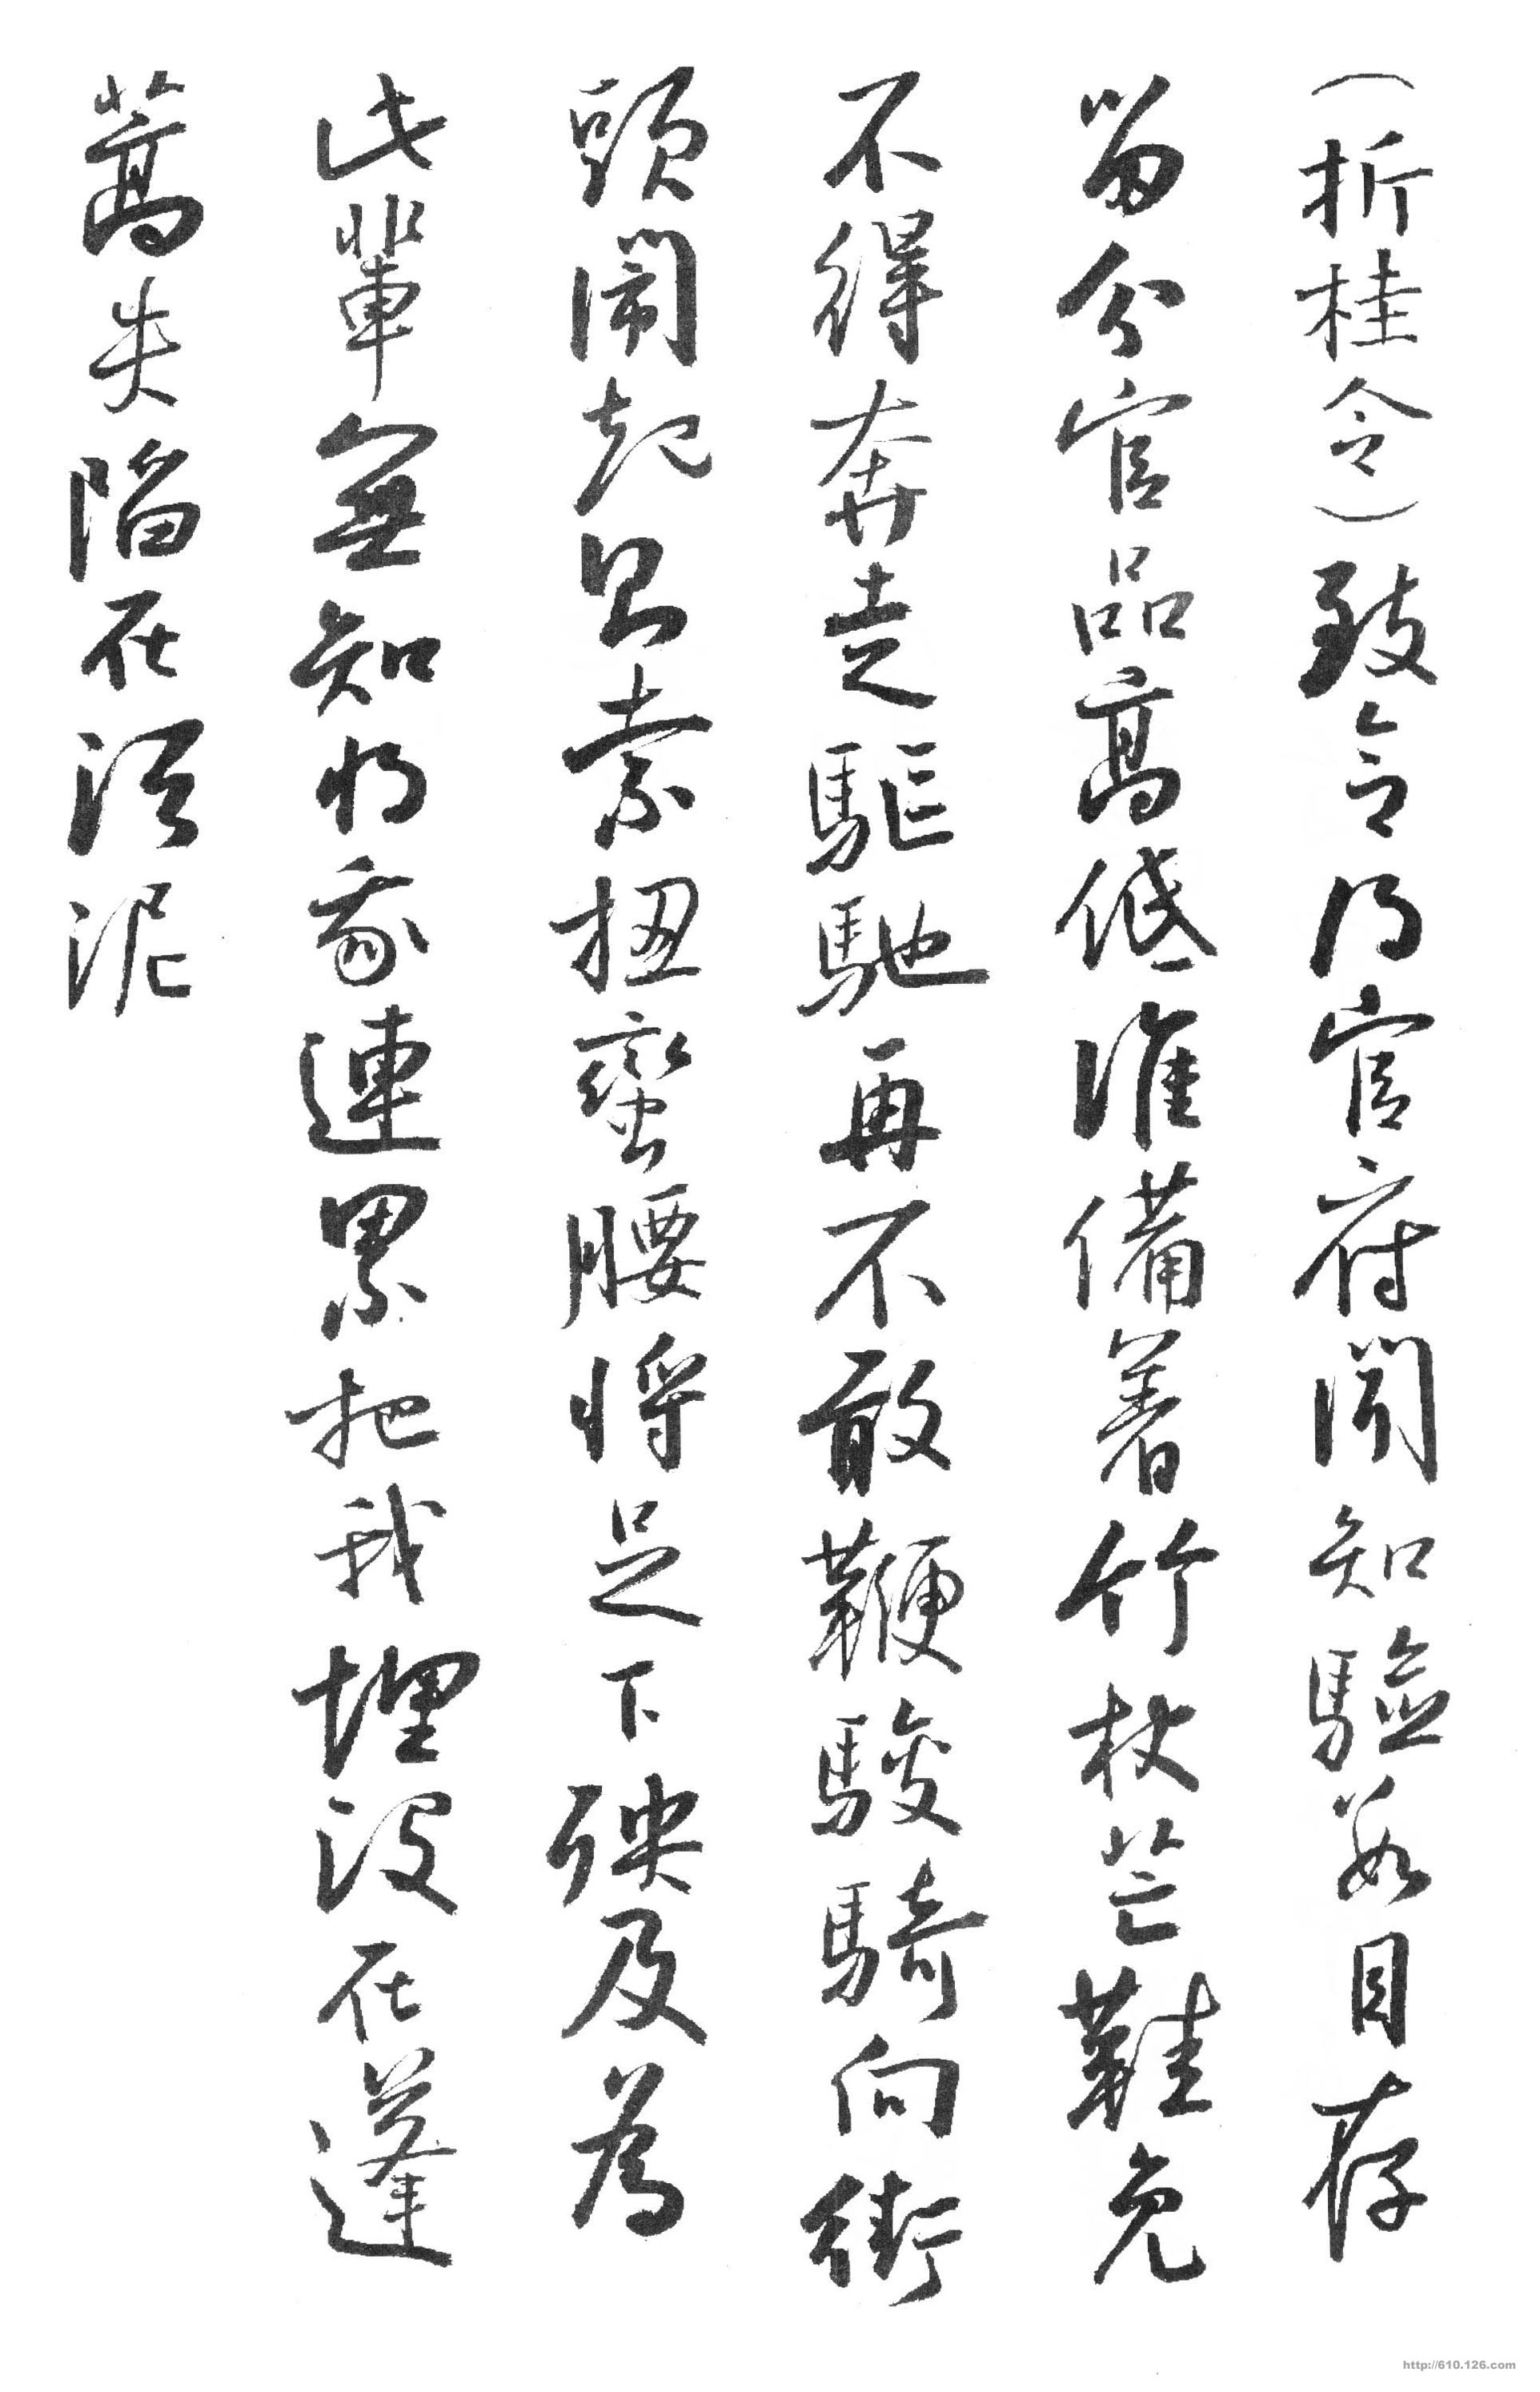 （折桂令）致令乃官府聞知驗數目存
留分官品高低准備着竹杖芒鞋免
不得奔走驅馳再不敢鞭駿騎向街
頭鬧起只索扭蠻腰將足下殃及為
此輩無知將我連累把我埋没在蓬
蒿失陷在汚泥
http://610.126.com